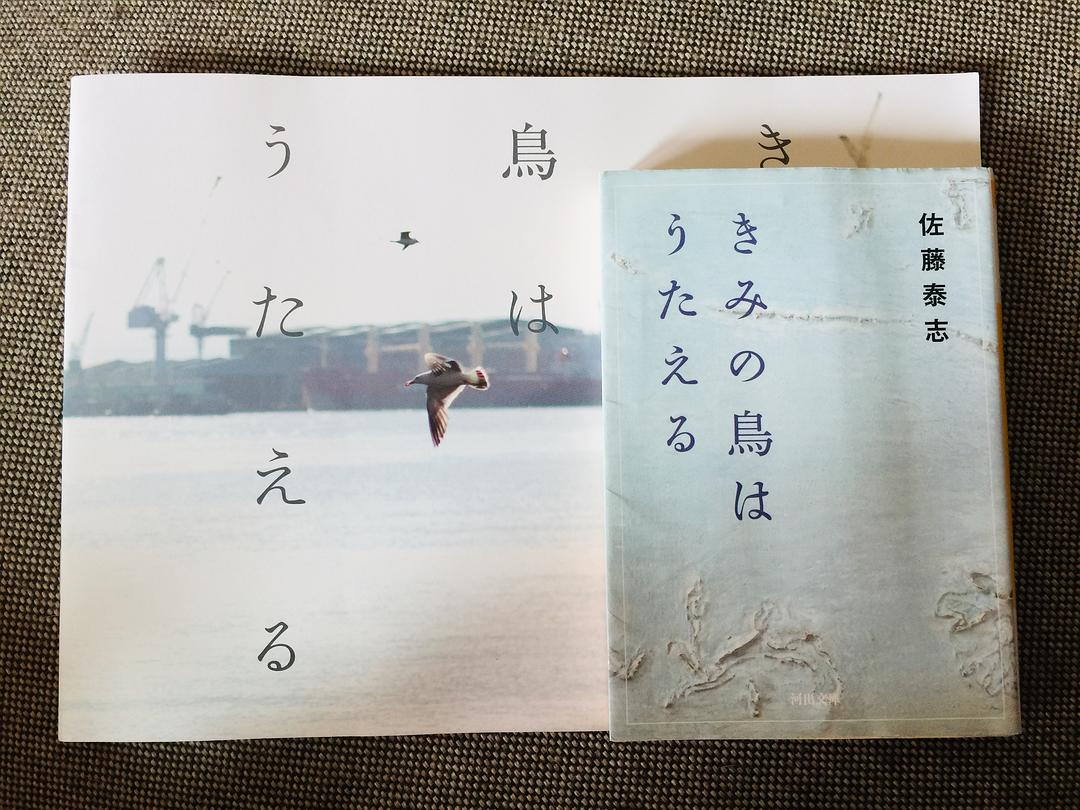 き
鳥は
うたえる
佐藤泰志
きみの鳥は
うたえる
河出文庫